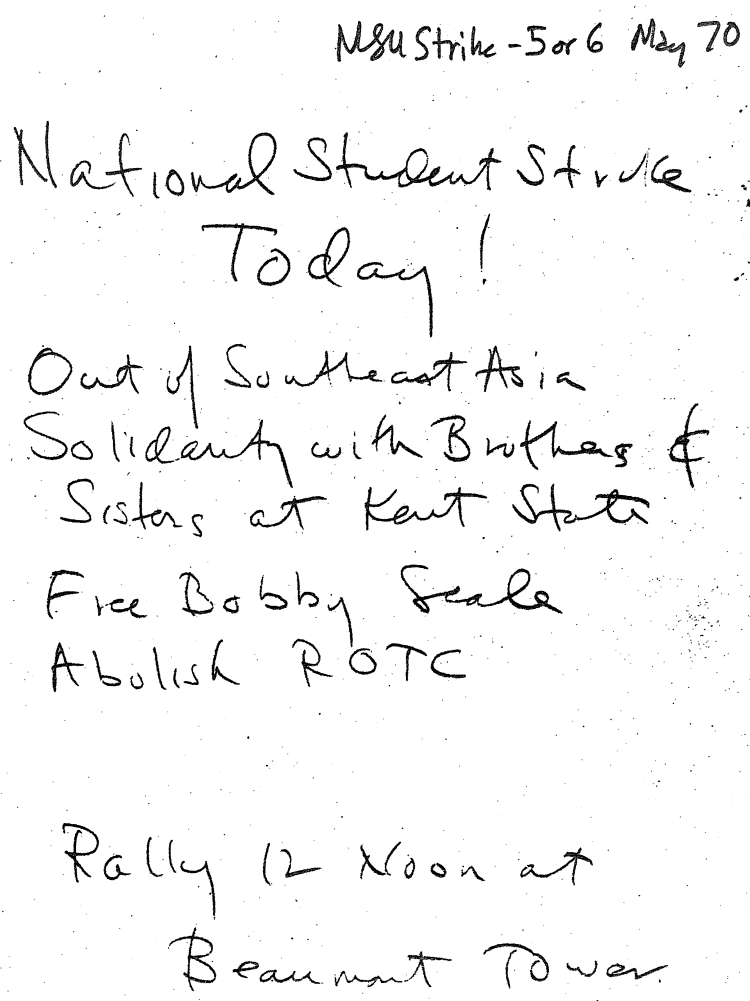 MSU Strike - 5 or 6 May 70
National Student Strike
Today!
Out of Southeast Asia
Solidarity with Brothers &
Sisters at Kent State
Free Bobby Seale
Abolish ROTC
Rally 12 Noon at
Beaumont Tower.